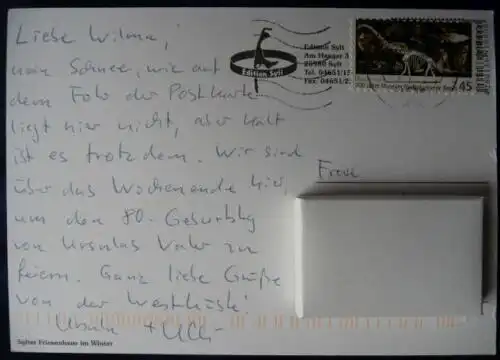 Liebe Wilma,
nein Schnee, wie auf
dem Foto der Postkarte
liegt hier nicht, aber kalt
ist es trotzdem. Wir sind
über das Wochenende hier,
um den 80. Geburtstag
von Ursulas Vater zu
feiern. Ganz liebe Grüße
von der Westküste!
Ursula + Ulli
Sylter Friesenhaus im Winter
Edition Sylt
Edition Sylt
Am Hangar 3
25980 Sylt
Tel. 04651/15
Fax. 04651/2
45
Frau